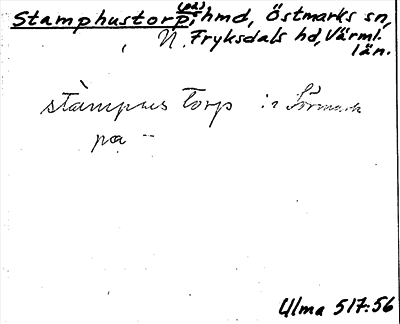 Stamphustorp, (på) hmd, Östmarks sn,
N. Fryksdals hd, Värml.
län.
stàmpus torp i Sörmark
pa --
Ulma 517:56